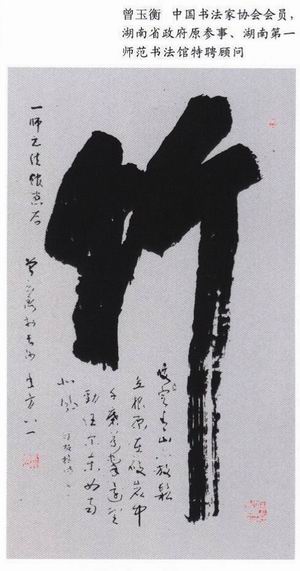 曾玉衡 中国书法家协会会员，
湖南省政府原参事、湖南第一
师范书法馆特聘顾问
竹
咬定青山不放鬆
立根原在破岩中
千磨万击还坚
劲任尔东西南
北风
一师书法馆惠存
曾玉衡于长沙 年方八一